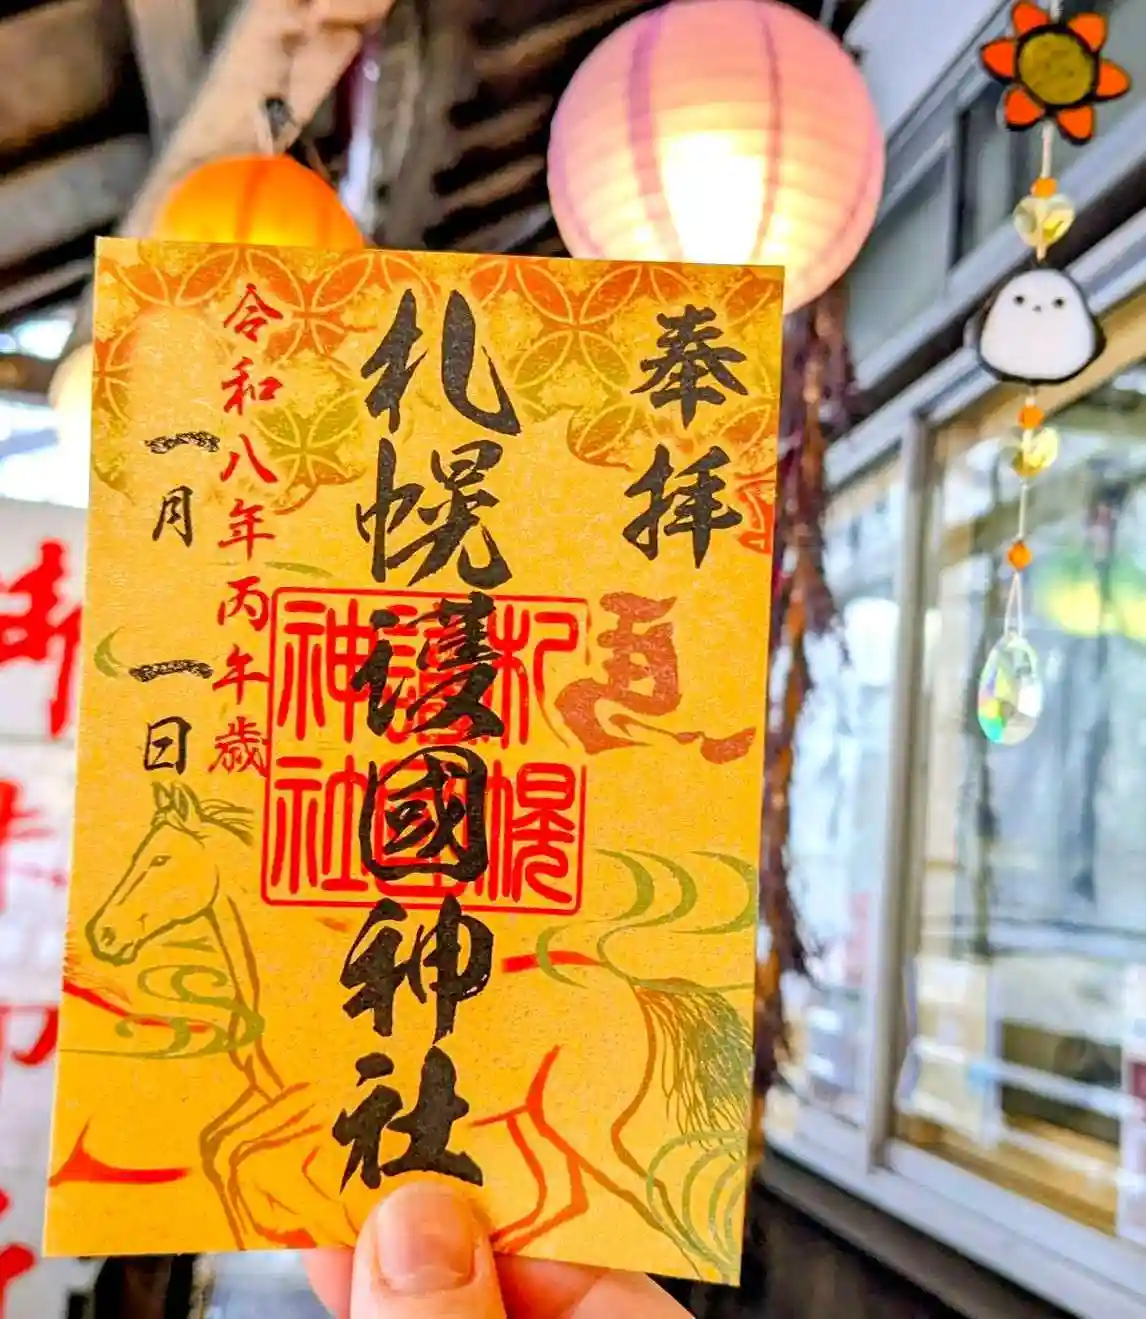 奉拝
札幌護國神社
札幌
護國
神社
令和八年丙午歳
一月一日